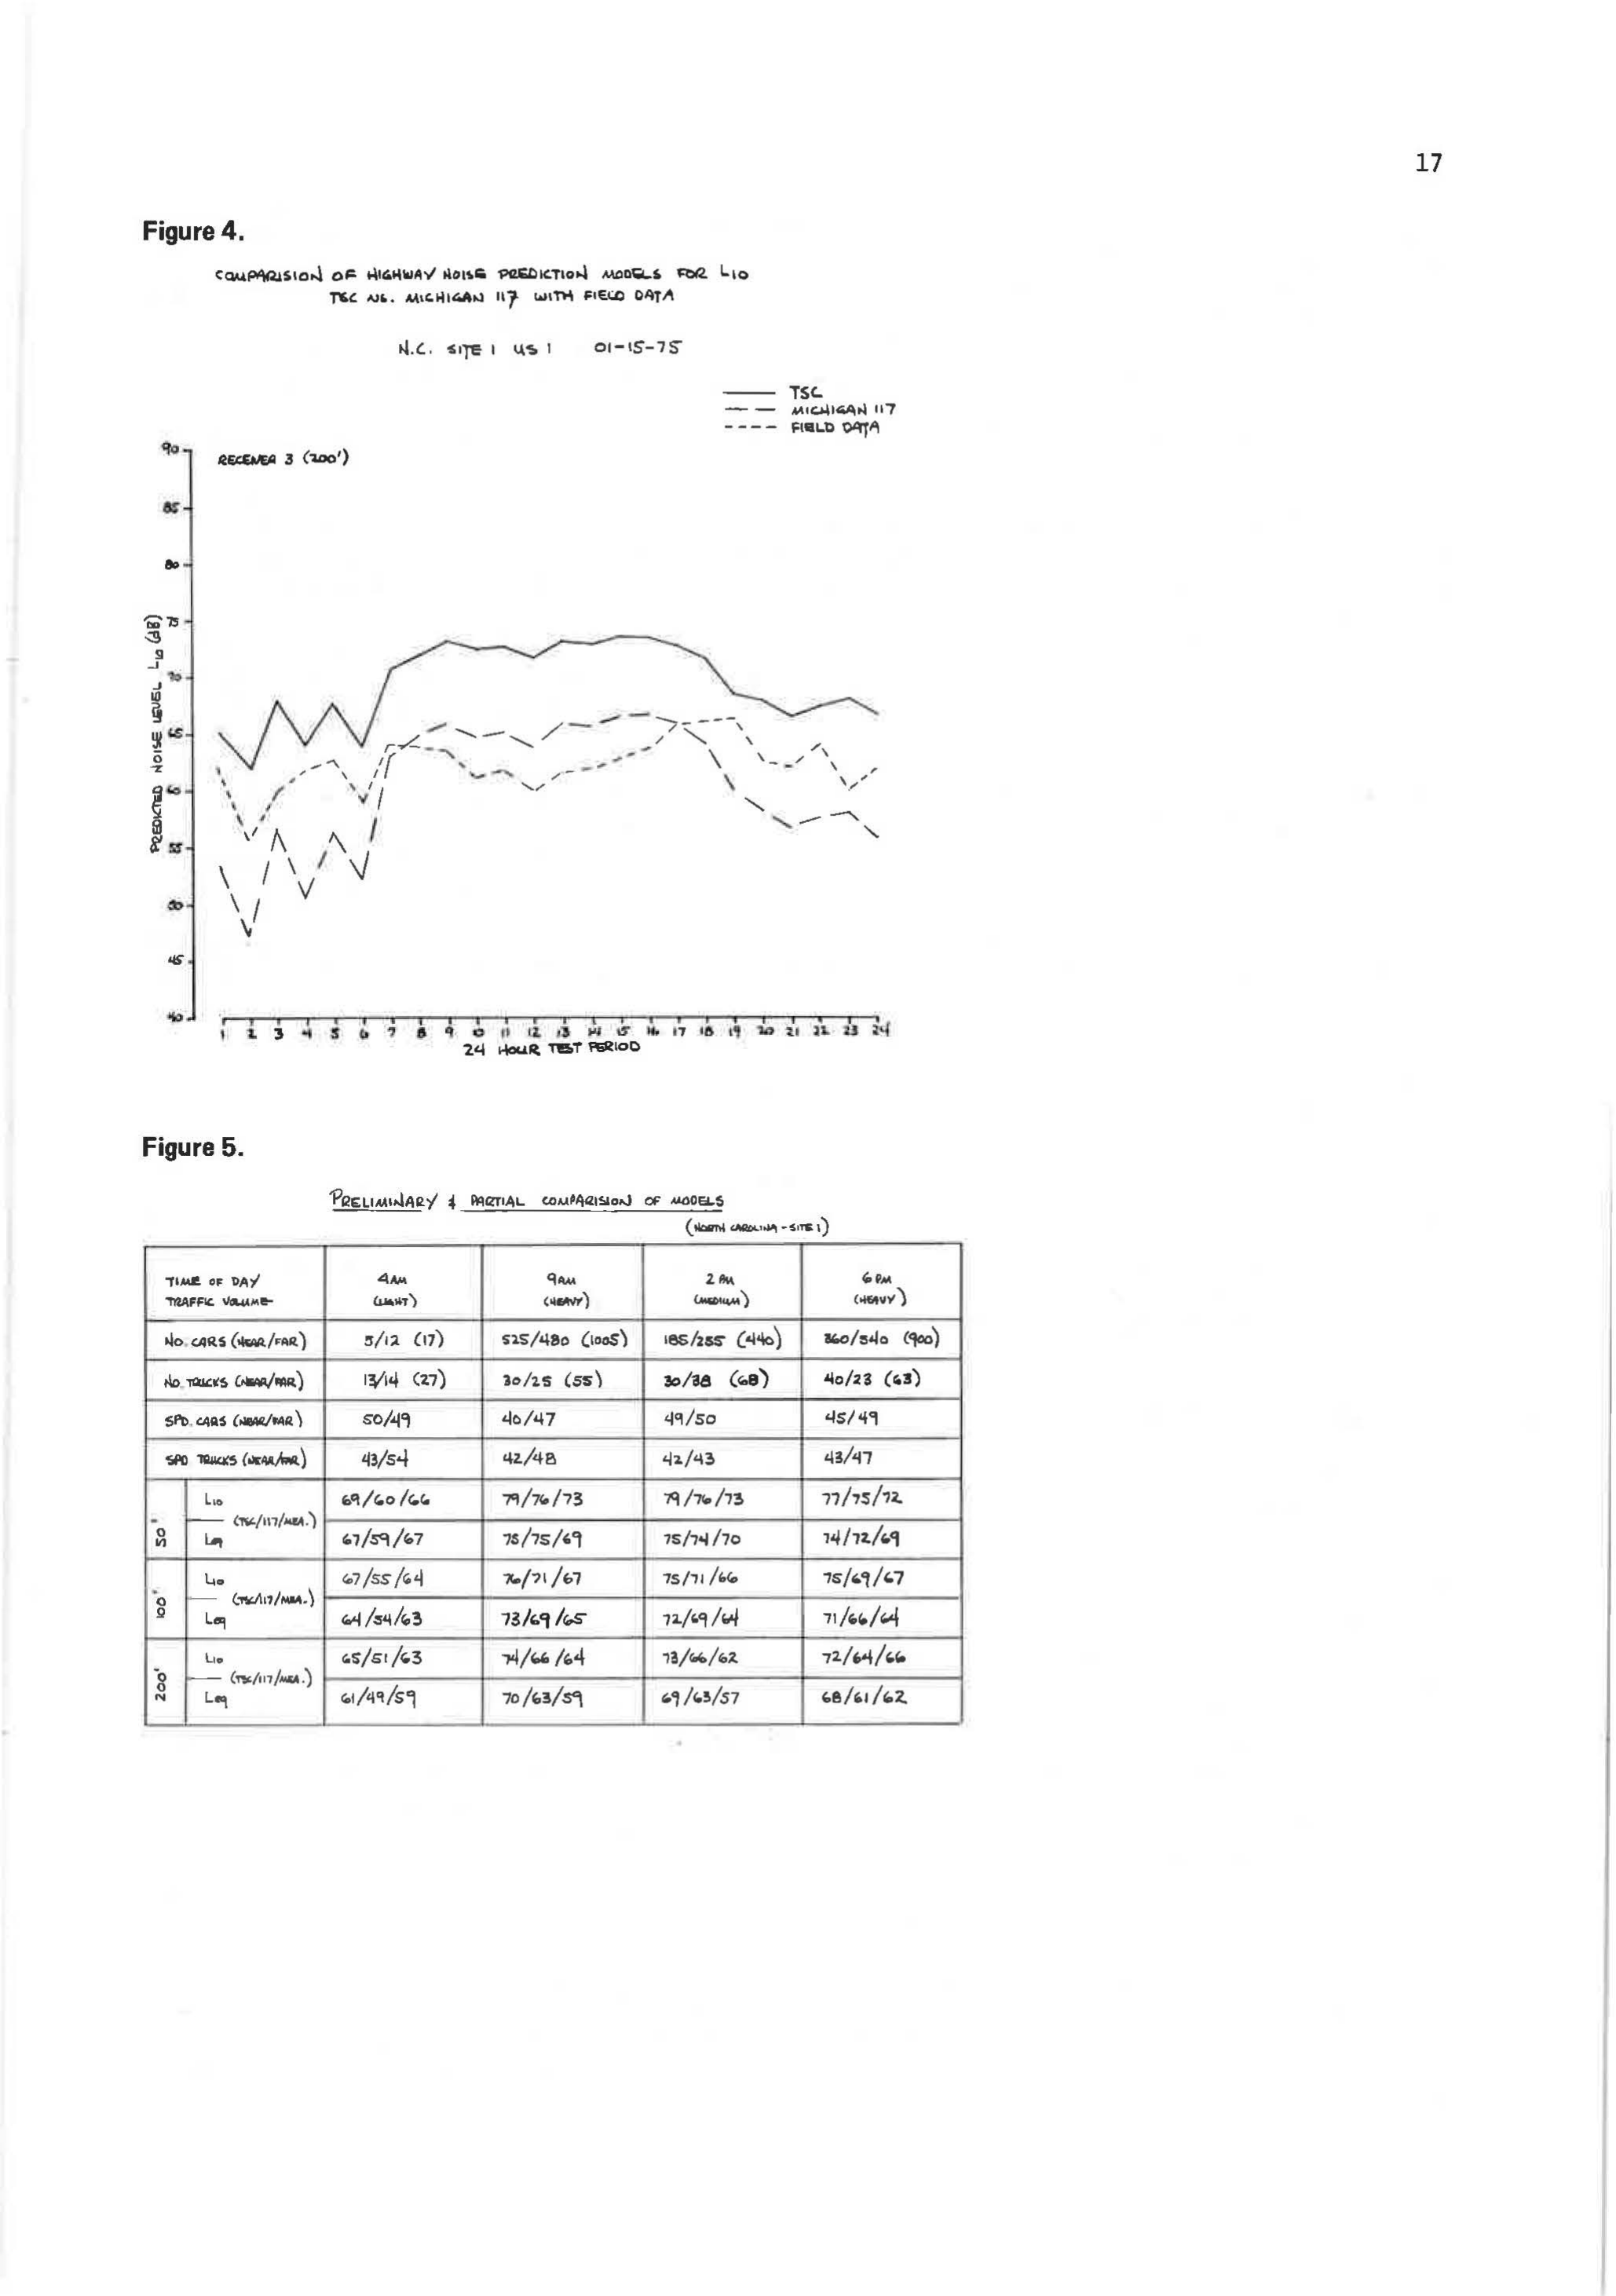 17
Figure 4.
COMPARISION OF HIGHWAY NOISE PREDICTION MODELS FOR L10
TSC VS. MICHIGAN 117 WITH FIELD DATA
N.C. SITE 1 US 1 01-15-75
TSC
MICHIGAN 117
FIELD DATA
RECEIVER 3 (200')
90
85
80
75
70
65
60
55
50
45
40
PREDICTED NOISE LEVEL L10 (dB)
1 2 3 4 5 6 7 8 9 10 11 12 13 14 15 16 17 18 19 20 21 22 23 24
24 HOUR TEST PERIOD
Figure 5.
PRELIMINARY & PARTIAL COMPARISION OF MODELS
(NORTH CAROLINA - SITE 1)
TIME OF DAY 4 AM 9 AM 2 PM 6 PM
TRAFFIC VOLUME (LIGHT) (HEAVY) (MEDIUM) (HEAVY)
NO. CARS (NEAR/FAR) 5/12 (17) 525/480 (1005) 185/255 (440) 360/540 (900)
NO. TRUCKS (NEAR/FAR) 13/14 (27) 30/25 (55) 30/38 (68) 40/23 (63)
SPD. CARS (NEAR/FAR) 50/49 40/47 49/50 45/49
SPD TRUCKS (NEAR/FAR) 43/54 42/48 42/43 43/47
50' L10 (TSC/117/MEA.) 69/60/66 79/76/73 79/76/73 77/75/72
Leq 67/59/67 75/75/69 75/74/70 74/72/69
100' L10 (TSC/117/MEA.) 67/55/64 76/71/67 75/71/66 75/69/67
Leq 64/54/63 73/69/65 72/69/64 71/66/64
200' L10 (TSC/117/MEA.) 65/51/63 74/66/64 73/66/62 72/64/66
Leq 61/49/59 70/63/59 69/63/57 68/61/62